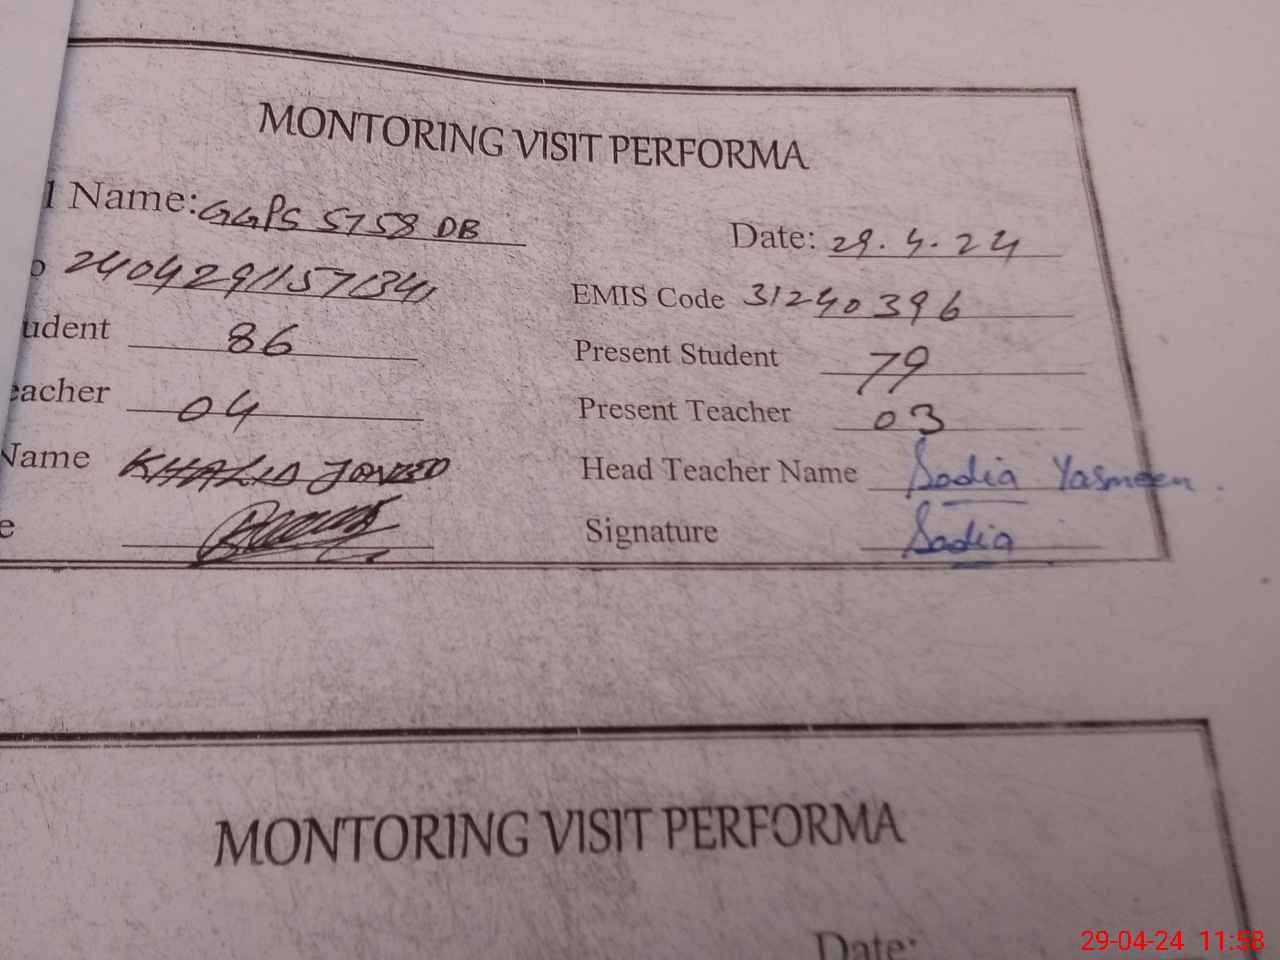 MONTORING VISIT PERFORMA
l Name: GGPS 5758 DB Date: 29.4.24
o 24042911571341 EMIS Code 31240396
udent 86 Present Student 79
eacher 04 Present Teacher 03
Name KHALID Head Teacher Name Sadia Yasmeen.
e Signature Sadia
MONTORING VISIT PERFORMA
Date:
29-04-24 11:58